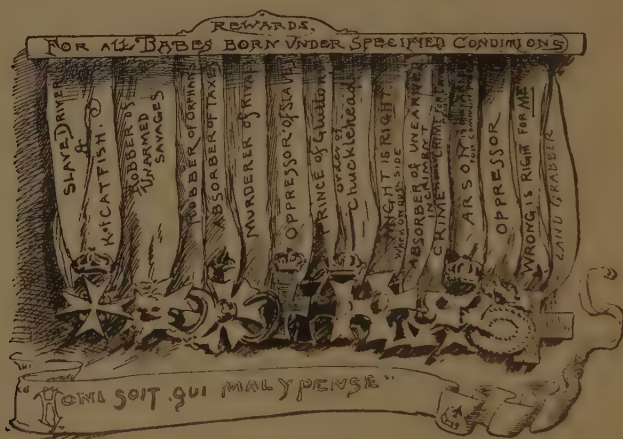 REWARDS,
FOR ALL BABES BORN UNDER SPECIFIED CONDITIONS
SLAVE DRIVER
&
K of CATFISH.
ROBBER OF
UNARMED
SAVAGES
ROBBER OF ORPHANS
ABSORBER OF TAXES
MURDERER OF RIVALS
OPPRESSOR OF SLAVES
PRINCE OF Gluttons
ORDER OF
Chuckleheads
MIGHT IS RIGHT
WHEN ON OUR SIDE
ABSORBER OF UNEARNED
INCRIMENT
CRIME
ARSON
OPPRESSOR
WRONG IS RIGHT FOR ME
LAND GRABBER
"HONI SOIT. QUI MAL Y PENSE"